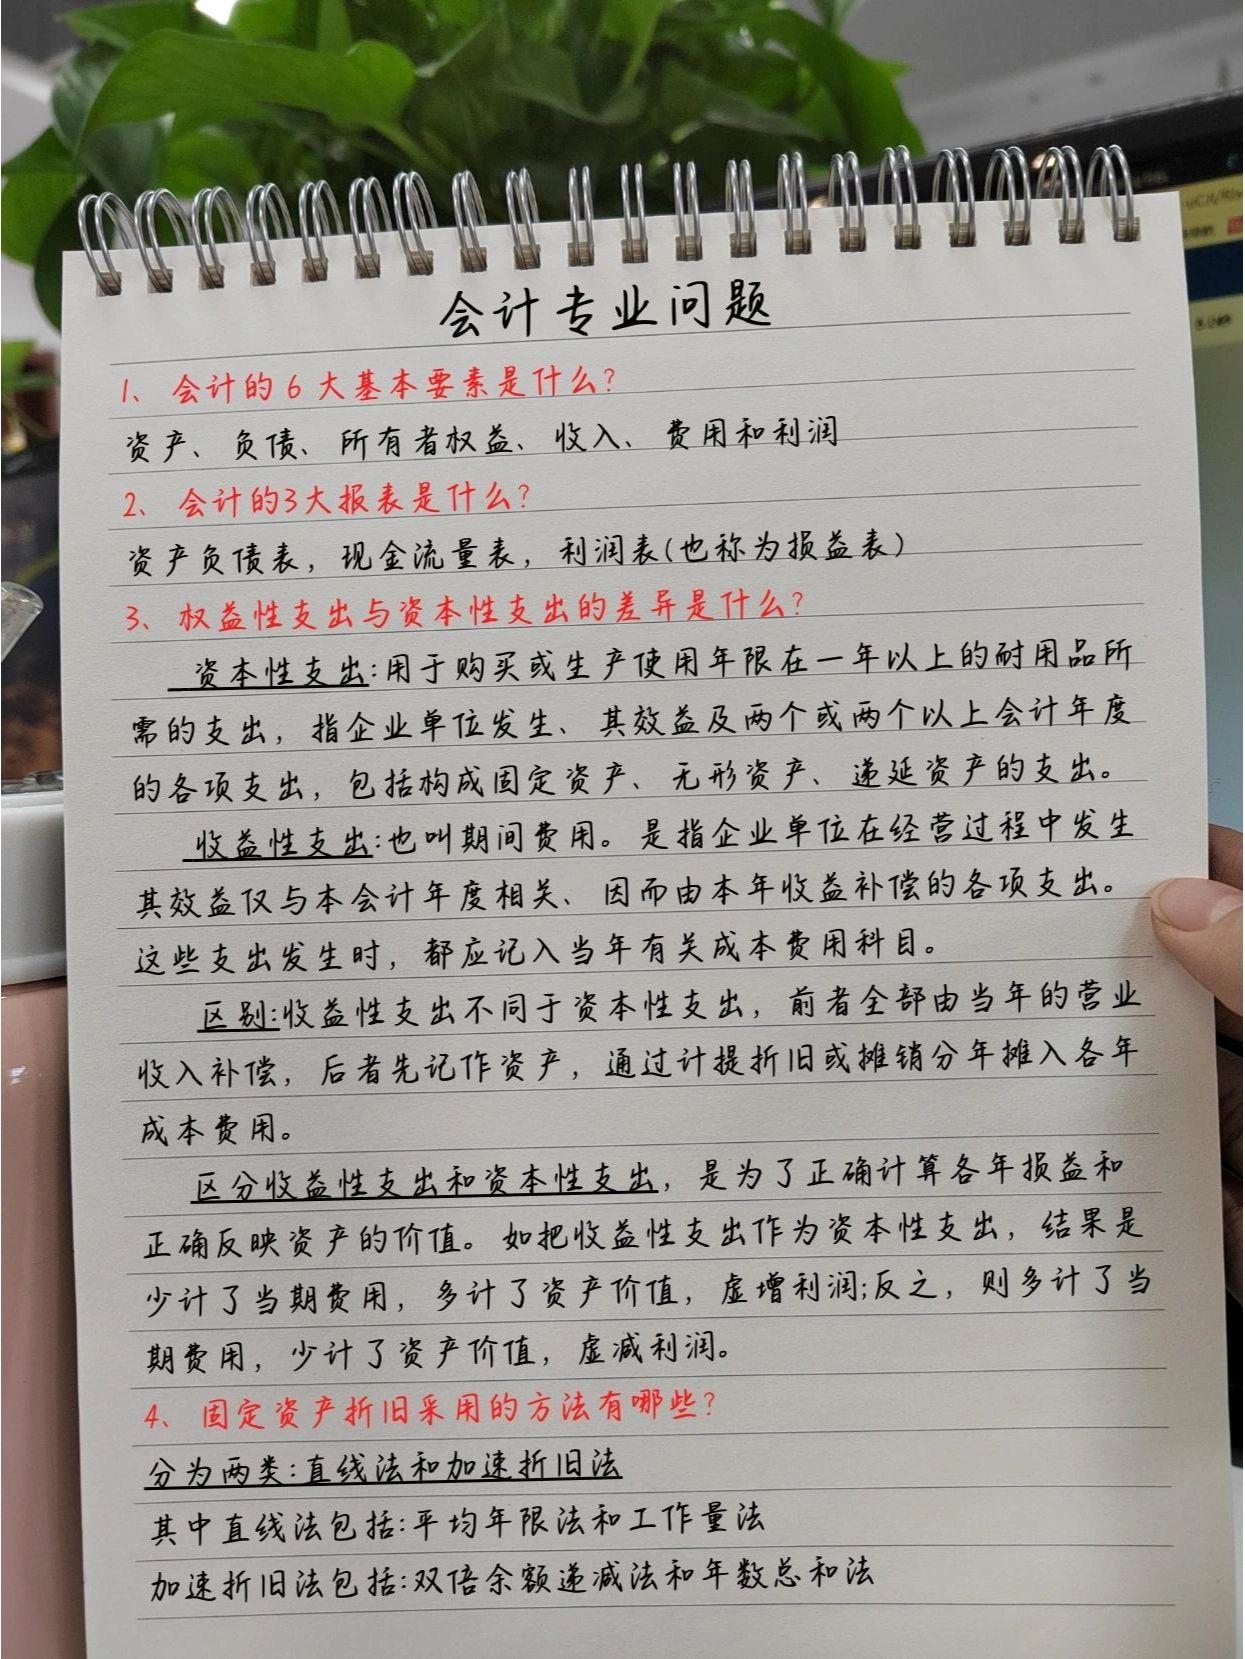 会计专业问题
1、会计的6大基本要素是什么?
资产、负债、所有者权益、收入、费用和利润
2、会计的3大报表是什么?
资产负债表，现金流量表，利润表(也称为损益表)
3、权益性支出与资本性支出的差异是什么?
资本性支出:用于购买或生产使用年限在一年以上的耐用品所
需的支出，指企业单位发生、其效益及两个或两个以上会计年度
的各项支出，包括构成固定资产、无形资产、递延资产的支出。
收益性支出:也叫期间费用。是指企业单位在经营过程中发生
其效益仅与本会计年度相关、因而由本年收益补偿的各项支出。
这些支出发生时，都应记入当年有关成本费用科目。
区别:收益性支出不同于资本性支出，前者全部由当年的营业
收入补偿，后者先记作资产，通过计提折旧或摊销分年摊入各年
成本费用。
区分收益性支出和资本性支出，是为了正确计算各年损益和
正确反映资产的价值。如把收益性支出作为资本性支出，结果是
少计了当期费用，多计了资产价值，虚增利润;反之，则多计了当
期费用，少计了资产价值，虚减利润。
4、固定资产折旧采用的方法有哪些?
分为两类:直线法和加速折旧法
其中直线法包括:平均年限法和工作量法
加速折旧法包括:双倍余额递减法和年数总和法